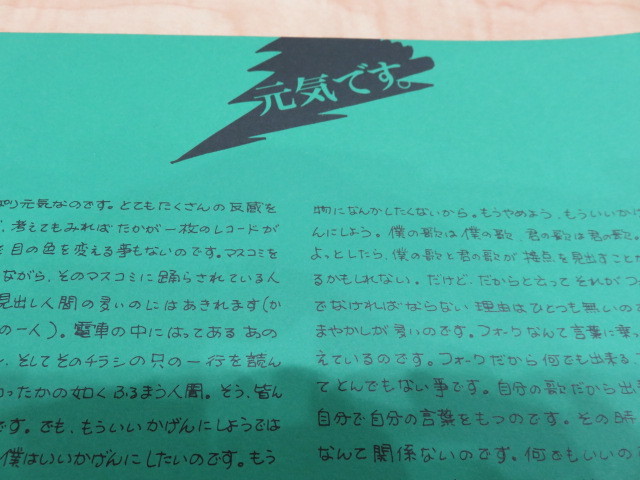 元気です。
ぱり元気なのです。とてもたくさんの反感を
、考えてもみればたかが一枚のレコードが
目の色を変える事もないのです。マスコミを
ながら、そのマスコミに踊らされている人
見出し人間の多いのにはあきれます(か
の一人)。電車の中にはってある あの
、そしてそのチラシの只の一行を読ん
ったかの如く ふるまう人間。そう、皆ん
です。でも、もういいかげんにしようでは
僕はいいかげんにしたいのです。もう
物になんかしたくないから。もうやめよう、もういいかげ
んにしよう。僕の歌は僕の歌、君の歌は君の歌。
よっとしたら、僕の歌と君の歌が接点を見出すことが
るかもしれない。だけど、だからと言って それが つ
でなければならない 理由はひとつも無いので
まやかしが多いのです。フォークなんて言葉に乗っ
えているのです。フォークだから何でも出来る、
てとんでもない事です。自分の歌だから出
自分で自分の言葉をもつのです。その時
なんて関係ないのです。何でもいいので